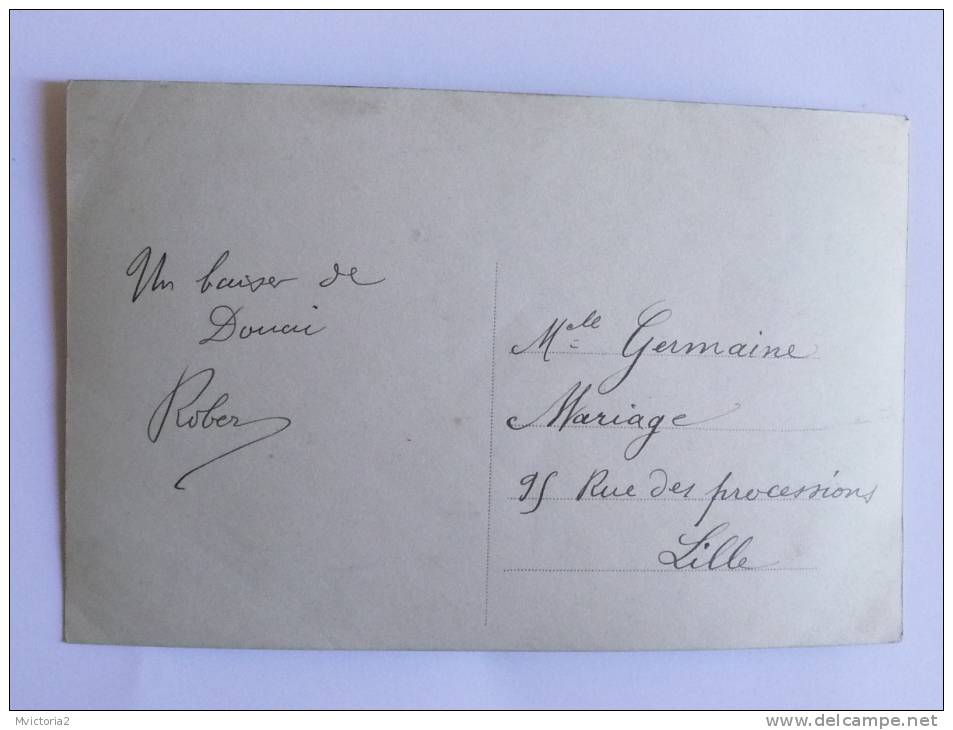 Un baiser de
Douai
Rober
Mlle Germaine
Mariage
95 Rue des processions
Lille
Mvictoria2
www.delcampe.net